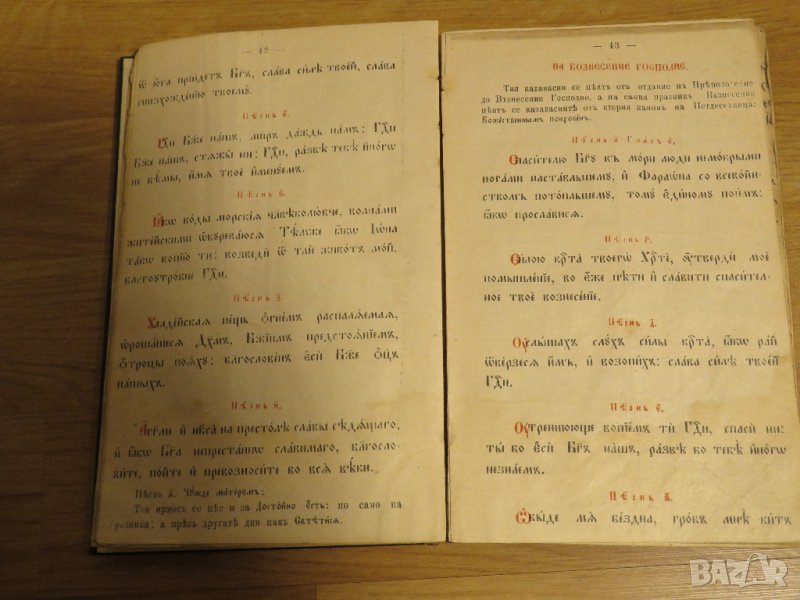 — 42 —
Ѿ юга прїидетъ Бг҃ъ, слава силѣ твоей, слава
снизхожденїю твоему.
Пѣснь е҃.
Гдⷭ҇и Бж҃е нашъ, миръ даждь намъ: Гдⷭ҇и
Бж҃е нашъ, стѧжы ны: Гдⷭ҇и, развѣ тебѣ иного
не вѣмы, имѧ твое именуемъ.
Пѣснь ѕ҃.
Ꙗкѡ воды морскїѧ чл҃вѣколюбче, волнами
житейскими ѡбуреваюсѧ Тѣмже ꙗкѡ Іѡна
такѡ вопїю ти: возведи ѿ тли животъ мой,
благоутробне Гдⷭ҇и.
Пѣснь з҃.
Халдейскаѧ пещь огнемъ распалѧемаѧ,
ѡрошашесѧ Дх҃омъ, Бж҃їимъ предстоѧнїемъ,
отроцы поѧху: благословенъ еси Бж҃е оц҃ъ
нашыхъ.
Пѣснь и҃.
Агг҃ели и нб҃са на престолѣ славы сѣдѧщаго,
и ꙗкѡ Бг҃а непрестаннѡ славимаго, благосло-
вите, пойте и превозносите во всѧ вѣки.
Пѣснь д҃. Чужде матеремъ;
Тоя ирмосъ се пѣе и за Достойно Есть: но само на
празника; а прѣзъ другитѣ дни пакъ Свѣтисѧ.
— 43 —
НА ВОЗНЕСЕНИЕ ГОСПОДНЕ
Тия катавасии се пѣятъ отъ отдание на Прѣполовение
до Вознесение Господне, а на самия праздникъ Вознесение
пѣятъ се катавасиитѣ отъ втория канонъ на Петдесетница:
Божественнымъ покровенъ.
Пѣснь а҃ Гласъ е҃.
Спасителю Бг҃у въ мори люди немокрыми
ногами наставльшему, и Фараѡна со всевойн-
ствомъ потопльшему, тому единому поимъ:
ꙗкѡ прослависѧ.
Пѣснь г҃.
Силою крⷭ҇та твоегѡ Хрⷭ҇те, утверди мое
помышленїе, во еже пѣти и славити спасител-
ное твое вознесенїе.
Пѣснь д҃.
Услышахъ слухъ силы крⷭ҇та, ꙗкѡ рай
ѿверзесѧ имъ, и возопихъ: слава силѣ твоей
Гдⷭ҇и.
Пѣснь е҃.
Утренююще вопїемъ ти Гдⷭ҇и, спаси ны:
ты бо еси Бг҃ъ нашъ, развѣ бо тебѣ иногѡ
не знаемъ.
Пѣснь ѕ҃.
Ѡбыде мѧ бездна, гробъ мнѣ китъ
BAZAR